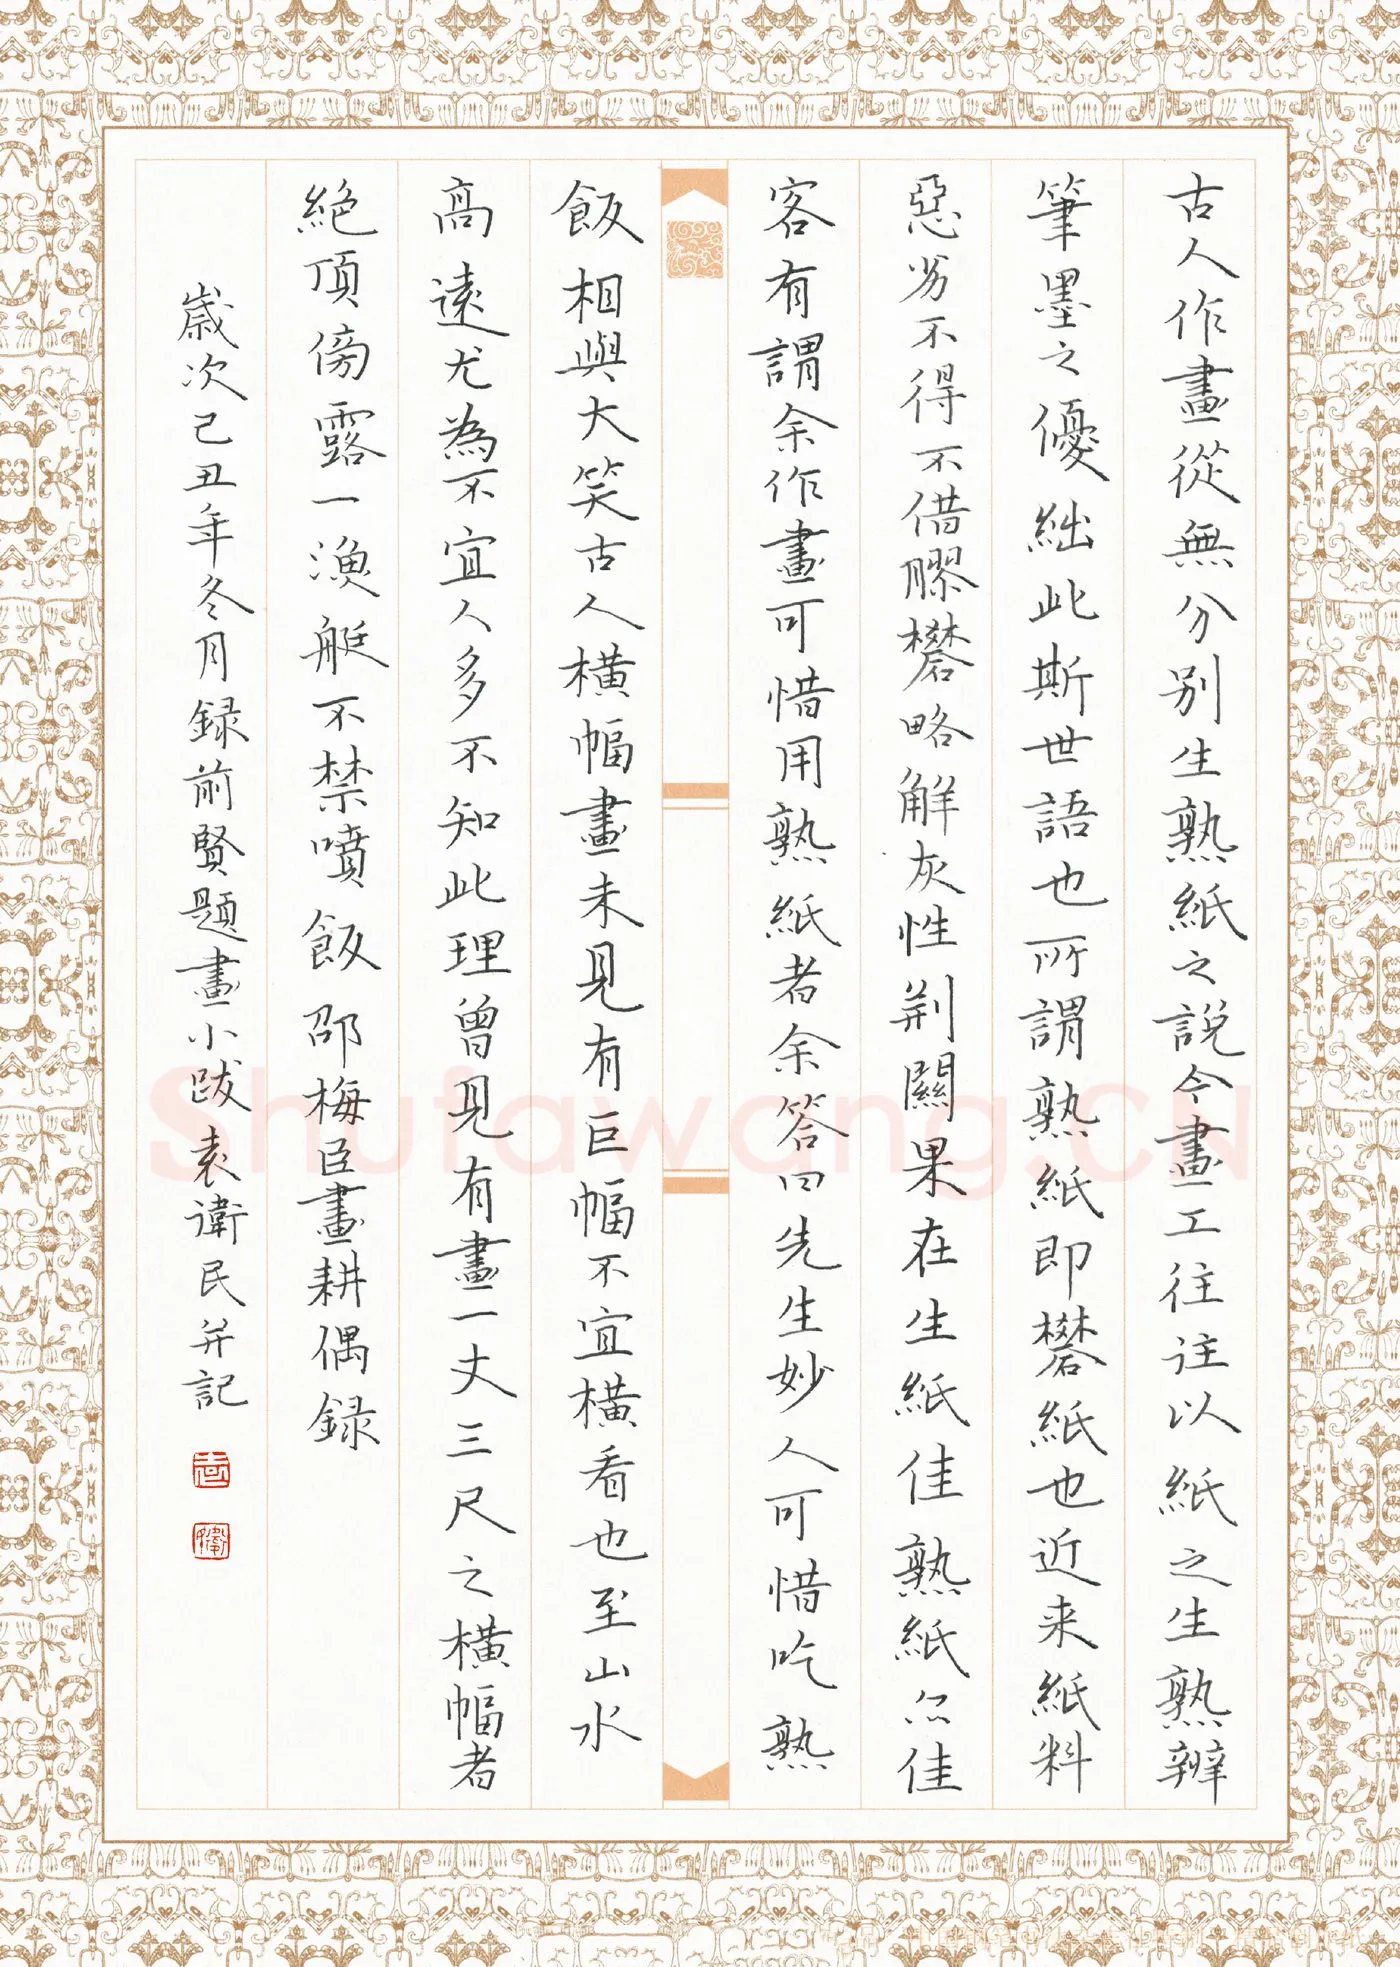 古人作畫從無分別生熟紙之說今畫工往往以紙之生熟辨
筆墨之優絀此斯世語也所謂熟紙即礬紙也近来紙料
惡劣不得不借膠礬略解灰性荆關果在生紙佳熟紙尒佳
客有謂余作畫可惜用熟紙者余答曰先生妙人可惜吃熟
飯相與大笑古人橫幅畫未見有巨幅不宜橫看也至山水
高遠尤為不宜人多不知此理曾見有畫一丈三尺之橫幅者
絶頂傍露一漁艇不禁噴飯邵梅臣畫耕偶録
歳次己丑年冬月録前賢題畫小跋袁衛民并記
Shufawang.CN